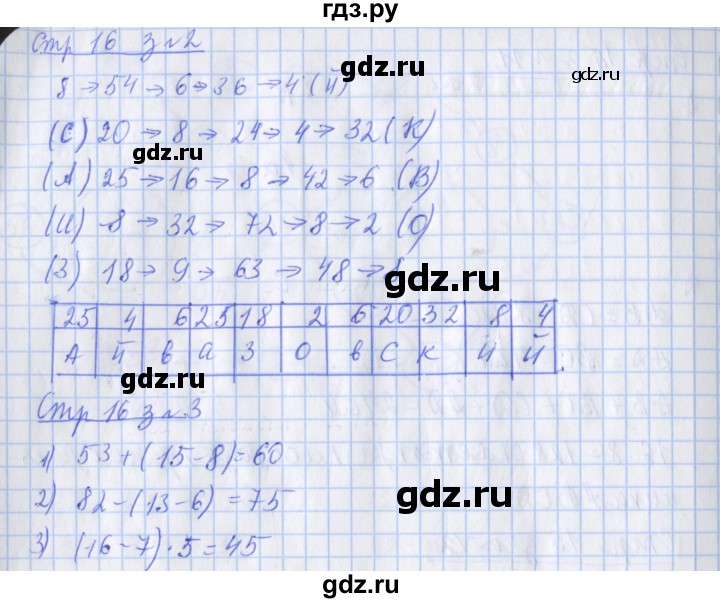 гдз.ру
Стр 16 з №2
gdz.ru
gdz.ru
8 → 54 → 6 → 36 → 4 (Й)
(С) 20 → 8 → 24 → 4 → 32 (К)
gdz.ru
(А) 25 → 16 → 8 → 42 → 6 (В)
(И) 8 → 32 → 72 → 8 → 2 (О)
(З) 18 → 9 → 63 → 48 → 8
gdz.ru
25 4 6 25 18 2 6 20 32 8 4
А й в а З О в С К И Й
gdz.ru
Стр 16 з №3
1) 53 + (15 - 8) = 60
2) 82 - (13 - 6) = 75
gdz.ru
3) (16 - 7) · 5 = 45
gdz.ru
gdz.ru